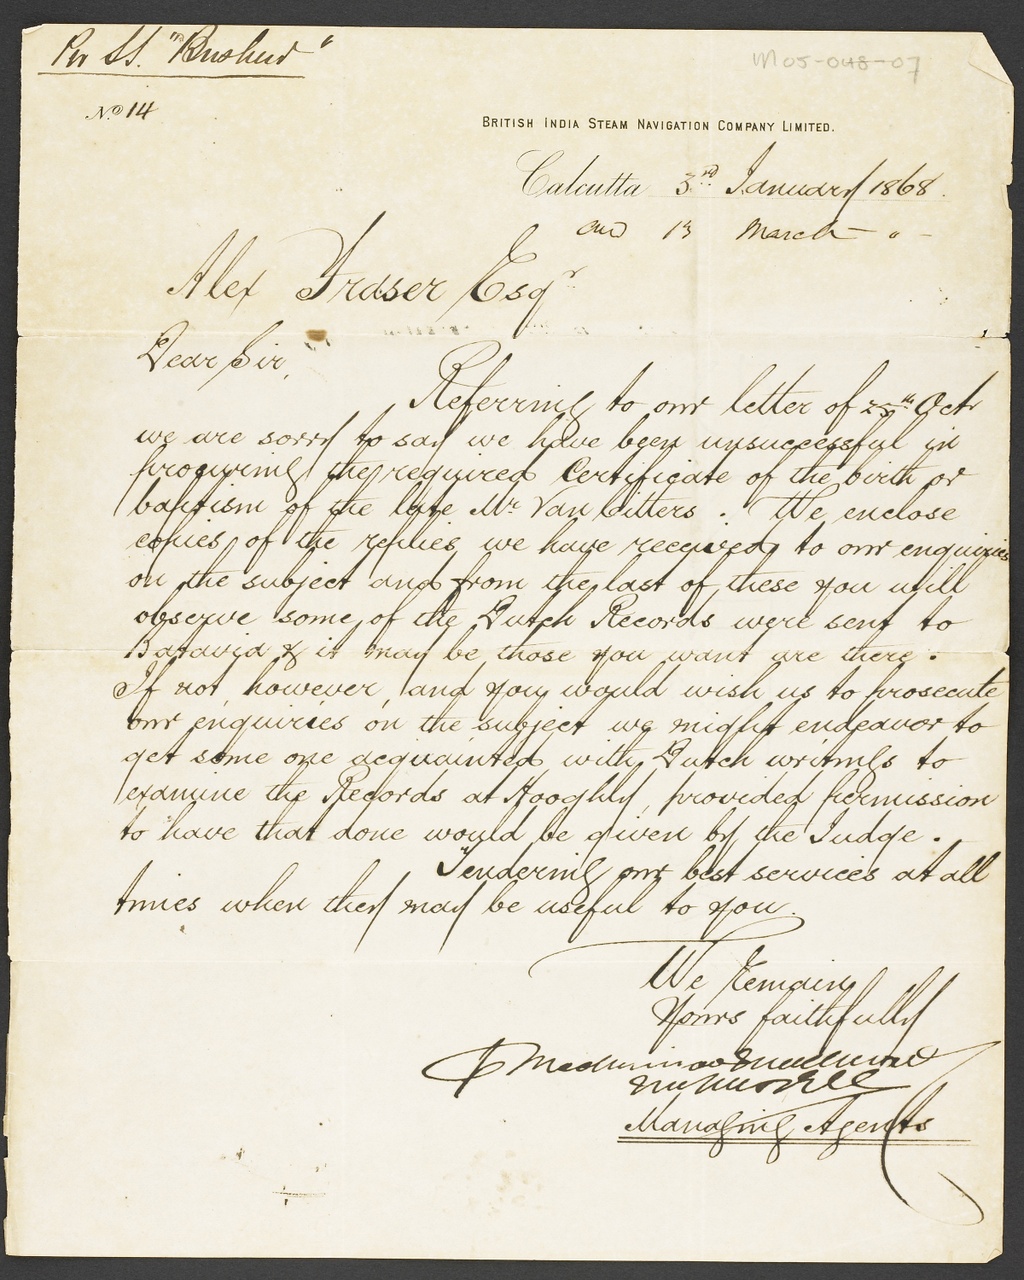 Per SS. "Busheer"
M05-048-07
No 14
BRITISH INDIA STEAM NAVIGATION COMPANY LIMITED.
Calcutta 3rd January 1868.
13 March " -
Alex Fraser Esqr
Dear Sir,
Referring to our letter of 25th Octr
we are sorry to say we have been unsuccessful in
procuring the required Certificate of the birth or
baptism of the late Mr Van Citters. We enclose
copies of the replies we have received to our enquiries
on the subject and from the last of these you will
observe some of the Dutch Records were sent to
Batavia & it may be those you want are there.
If not, however, and you would wish us to prosecute
our enquiries on the subject we might endeavor to
get some one acquainted with Dutch writings to
examine the Records at Hooghly, provided permission
to have that done would be given by the Judge.
Tendering our best services at all
times when they may be useful to you.
We Remain
Yours faithfully
Managing Agents